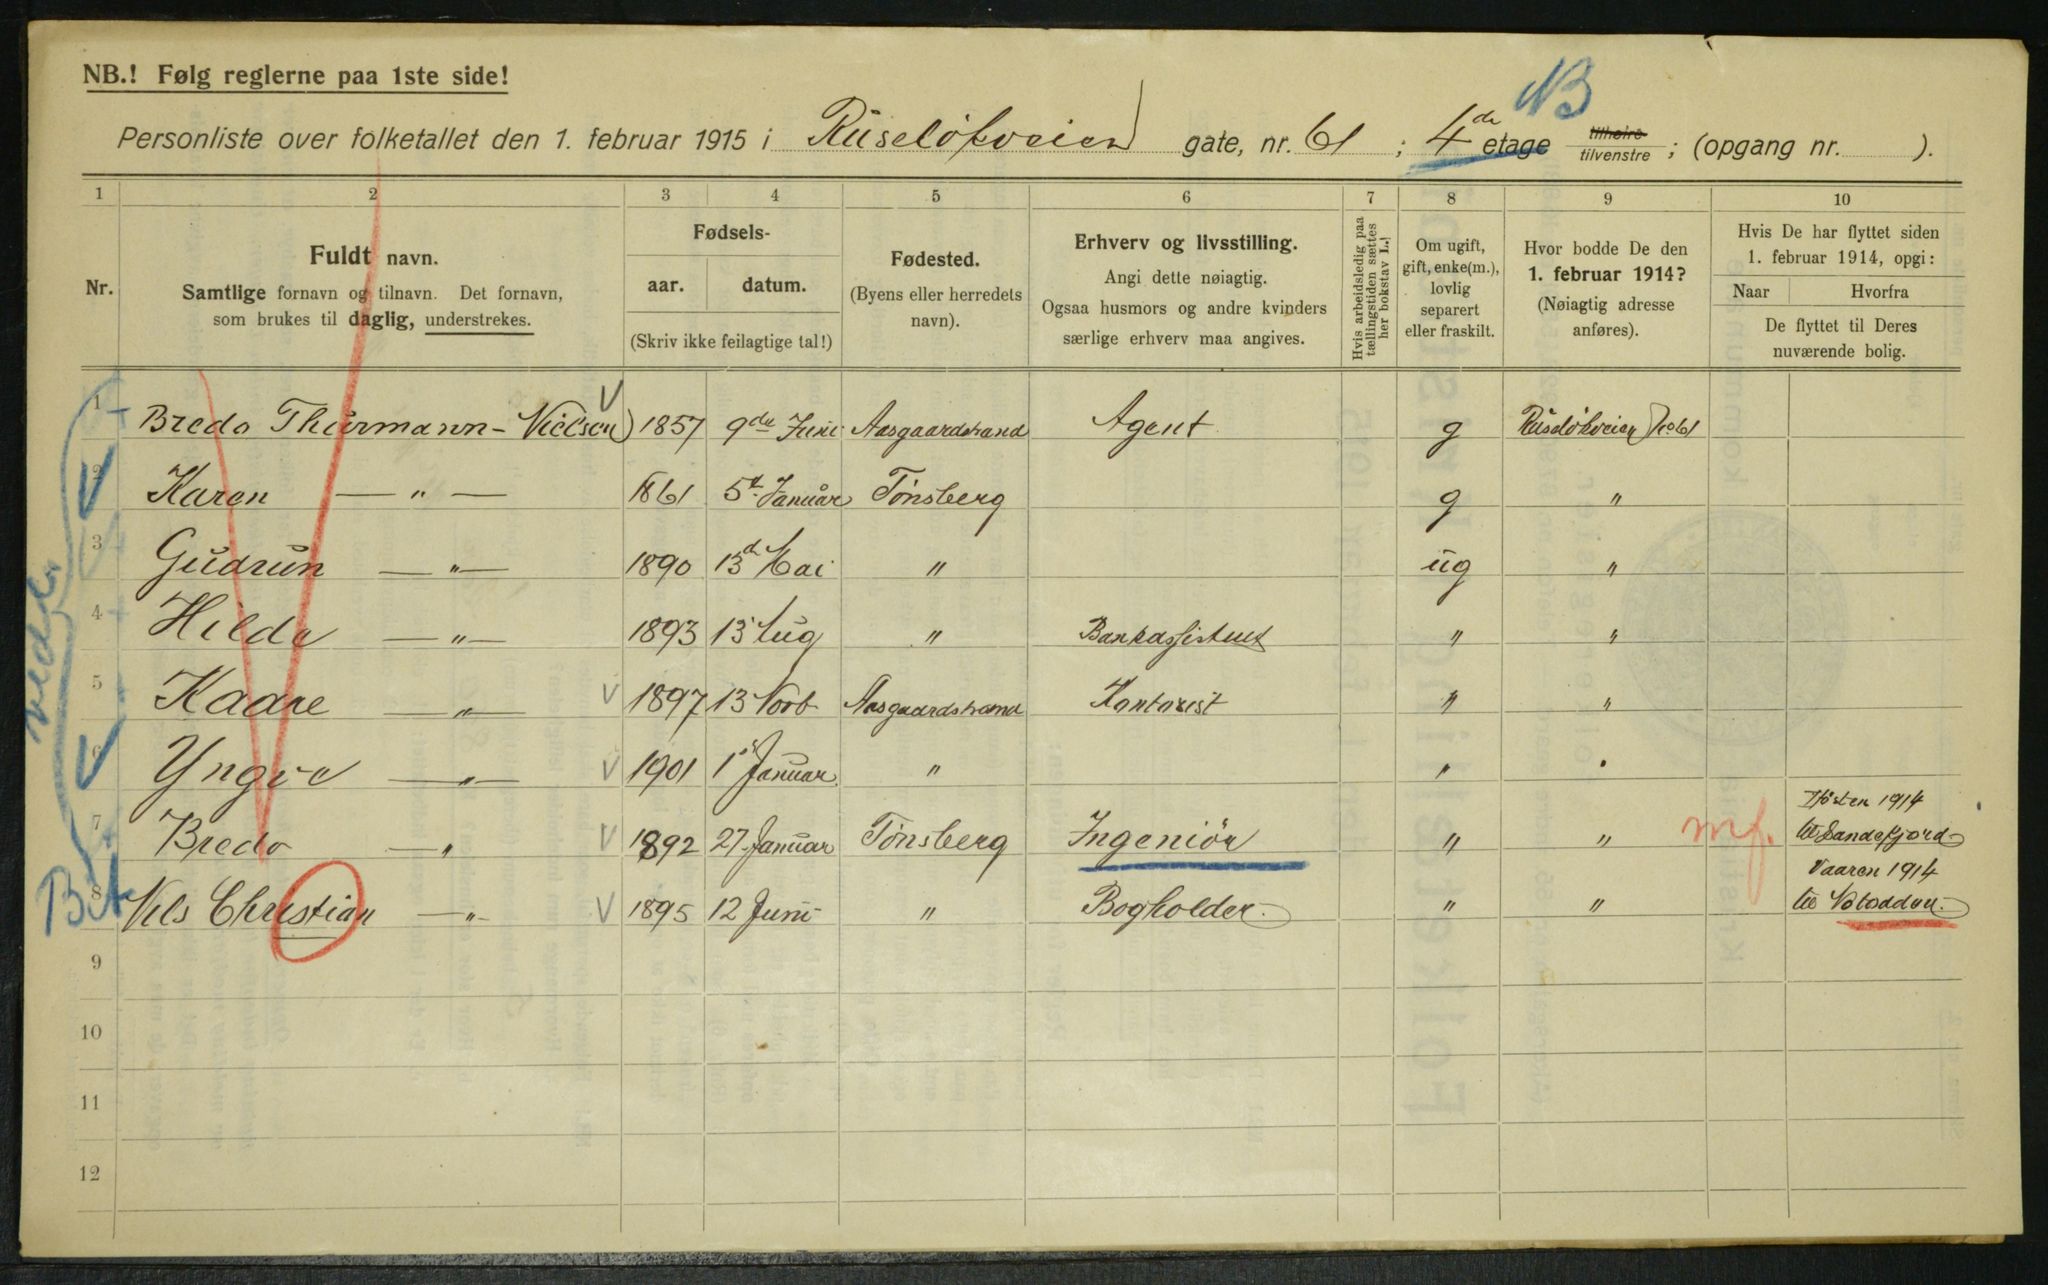 NB.! Følg reglerne paa 1ste side!
NB
Personliste over folketallet den 1. februar 1915 i Ruseløkveien gate, nr. 61 ; 4de etage tilhøire tilvenstre ; (opgang nr. ).
1 2 3 4 5 6 7 8 9 10
Nr.
Fuldt navn.
Samtlige fornavn og tilnavn. Det fornavn,
som brukes til daglig, understrekes.
Fødsels-
aar. datum.
(Skriv ikke feilagtige tal!)
Fødested.
(Byens eller herredets
navn).
Erhverv og livsstilling.
Angi dette nøiagtig.
Ogsaa husmors og andre kvinders
særlige erhverv maa angives.
Hvis arbeidsledig paa
tællingstiden sættes
her bokstav L.!
Om ugift,
gift, enke(m.),
lovlig
separert
eller fraskilt.
Hvor bodde De den
1. februar 1914?
(Nøiagtig adresse
anføres).
Hvis De har flyttet siden
1. februar 1914, opgi:
Naar Hvorfra
De flyttet til Deres
nuværende bolig.
1 Bredo Thurmann-Nielsen 1857 9de Juni Aasgaardstrand Agent g Ruseløkveien no 61
2 Karen — " — 1861 5t Januar Tønsberg g "
3 Gudrun — " — 1890 13d Mai " ug "
4 Hilda — " — 1893 13 Aug " Bankassistent " "
5 Kaare — " — 1897 13 Novb Aasgaardstrand Kontorist " "
6 Yngve — " — 1901 1s Januar " " "
7 Bredo — " 1892 27 Januar Tønsberg Ingeniør " " mf. Høsten 1914
til Sandefjord
8 Nils Christian — " — 1895 12 Juni " Bogholder " " Vaaren 1914
til Notodden
9
10
11
12